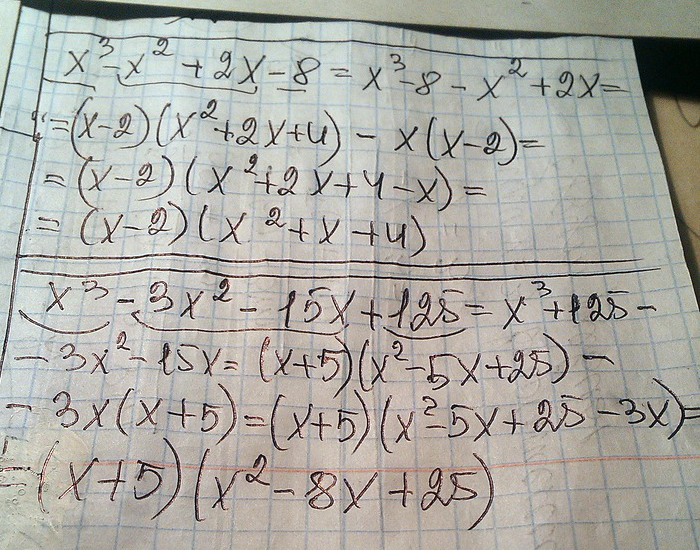 x³ - x² + 2x - 8 = x³ - 8 - x² + 2x =
= (x-2)(x² + 2x + 4) - x(x-2) =
= (x-2)(x² + 2x + 4 - x) =
= (x-2)(x² + x + 4)
x³ - 3x² - 15x + 125 = x³ + 125 -
- 3x² - 15x = (x+5)(x² - 5x + 25) -
- 3x(x+5) = (x+5)(x² - 5x + 25 - 3x) =
= (x+5)(x² - 8x + 25)